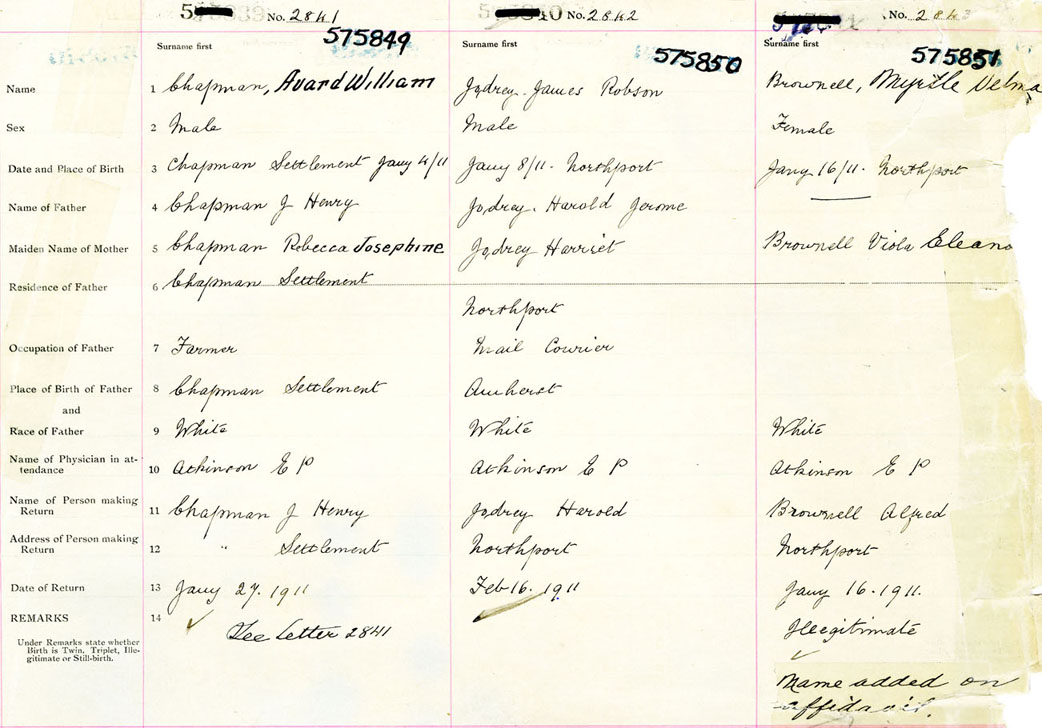 No. 2841 No. 2842 No. 2843
575849 575850 575851
Surname first Surname first Surname first
Name 1 Chapman, Avard William Jodrey. James Robson Brownell, Myrtle Velma
Sex 2 Male Male Female
Date and Place of Birth 3 Chapman Settlement Jany 4/11 Jany 8/11. Northport Jany 16/11. Northport
Name of Father 4 Chapman J Henry Jodrey. Harold Jerome
Maiden Name of Mother 5 Chapman Rebecca Josephine Jodrey Harriet Brownell Viola Eleano
Residence of Father 6 Chapman Settlement
Northport
Occupation of Father 7 Farmer Mail Courier
Place of Birth of Father 8 Chapman Settlement Amherst
and
Race of Father 9 White White White
Name of Physician in at-
tendance 10 Atkinson E P Atkinson E P Atkinson E P
Name of Person making
Return 11 Chapman J Henry Jodrey Harold Brownell Alfred
Address of Person making
Return 12 " Settlement Northport Northport
Date of Return 13 Jany 27. 1911 Feb 16. 1911 Jany 16. 1911.
REMARKS 14
See Letter 2841 Illegitimate
Under Remarks state whether
Birth is Twin, Triplet, Ille-
gitimate or Still-birth.
Name added on
affidavit.